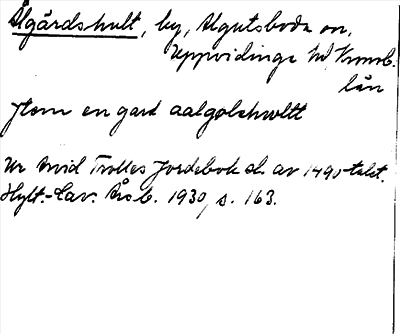 Älgårdshult, by, Algutsboda sn,
Uppvidinge hd, Kronob.
län
Jtem en gard aalgolshwltt
Ur Arvid Trolles Jordebok sl. av 1490-talet.
Hylt.-Cav. Årsb. 1930, s. 163.